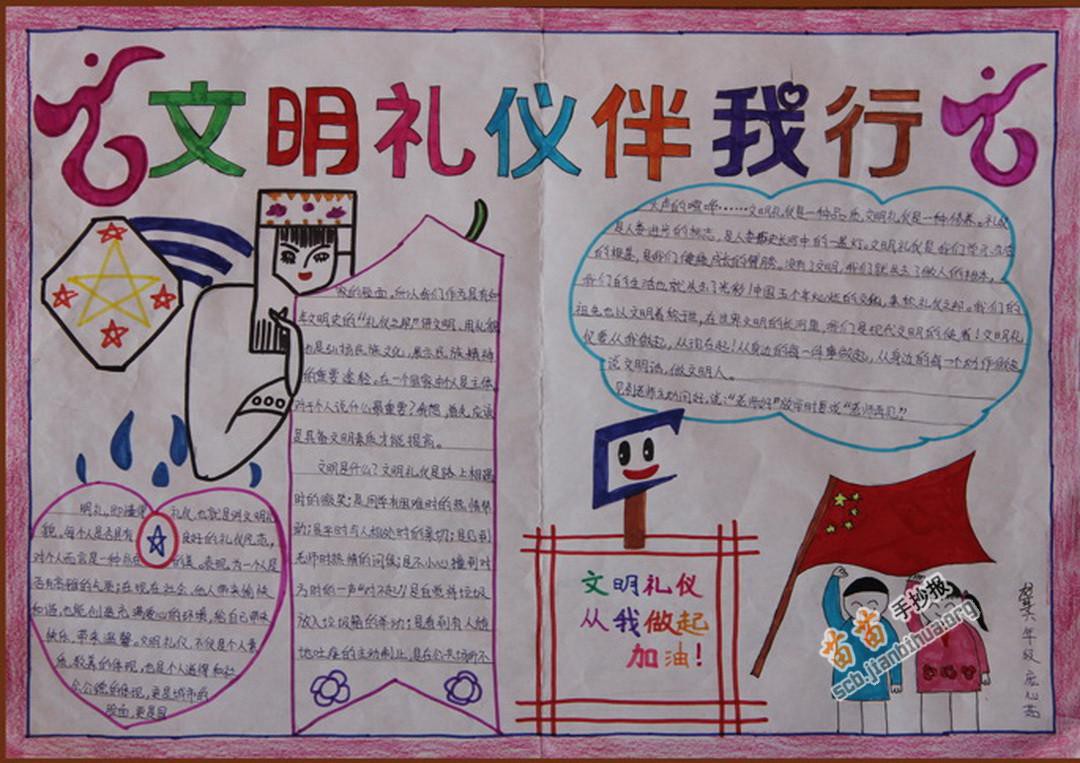 文明礼仪伴我行
明礼,即懂得 礼仪,也就是讲文明礼
貌。每个人是否具有 良好的礼仪风范,
对个人而言是一种外在 的美、表现,为一个人是
否有高雅的气质;在现在社会,他人带来愉快
和谐,也能创造充满爱心的环境,给自己带来
快乐,带来温馨。文明礼仪,不仅是个人素
质、教养的体现,也是个人道德和社
会公德的体现,更是城市的
脸面,更是国
家的脸面,所以我们作为具有如
年文明史的“礼仪之邦”讲文明、用礼仪
也是弘扬民族文化、展示民族精神
的重要途径。在一个国家中人是主体,
对于个人说什么最重要?我想,首先应该
是具备文明素质才能提高。
文明是什么?文明礼仪是路上相遇
时的微笑;是同学有困难时的热情帮
助;是平时与人相处时的亲切;是见到
老师时热情的问候;是不小心撞到对
方时的一声“对不起”;是自觉将垃圾
放入垃圾箱的举动;是看到有人随
地吐痰的主动制止;是在公共场所不
大声的喧哗……文明礼仪是一种品质,文明礼仪是一种修养。礼仪
是人类进步的标志,是人类历史长河中的一盏灯。文明礼仪是我们学习、生活
的根基,是我们健康成长的臂膀。没有了文明,我们就失去了做人的根本,
我们的生活也就失去了光彩!中国五千年灿烂的文化,素称礼仪之邦。我们的
祖先也以文明着称于世,在世界文明的长河里,我们是现代文明的使者!文明礼
仪要从我做起,从现在起!从身边的每一件事做起,从身边的每一个动作做起
说文明话,做文明人。
见到老师主动问好,说:“老师好”放学时要说“老师再见!”
文明礼仪
从我做起
加油!
六年级
苗苗手抄报
scb.jianbihua.org